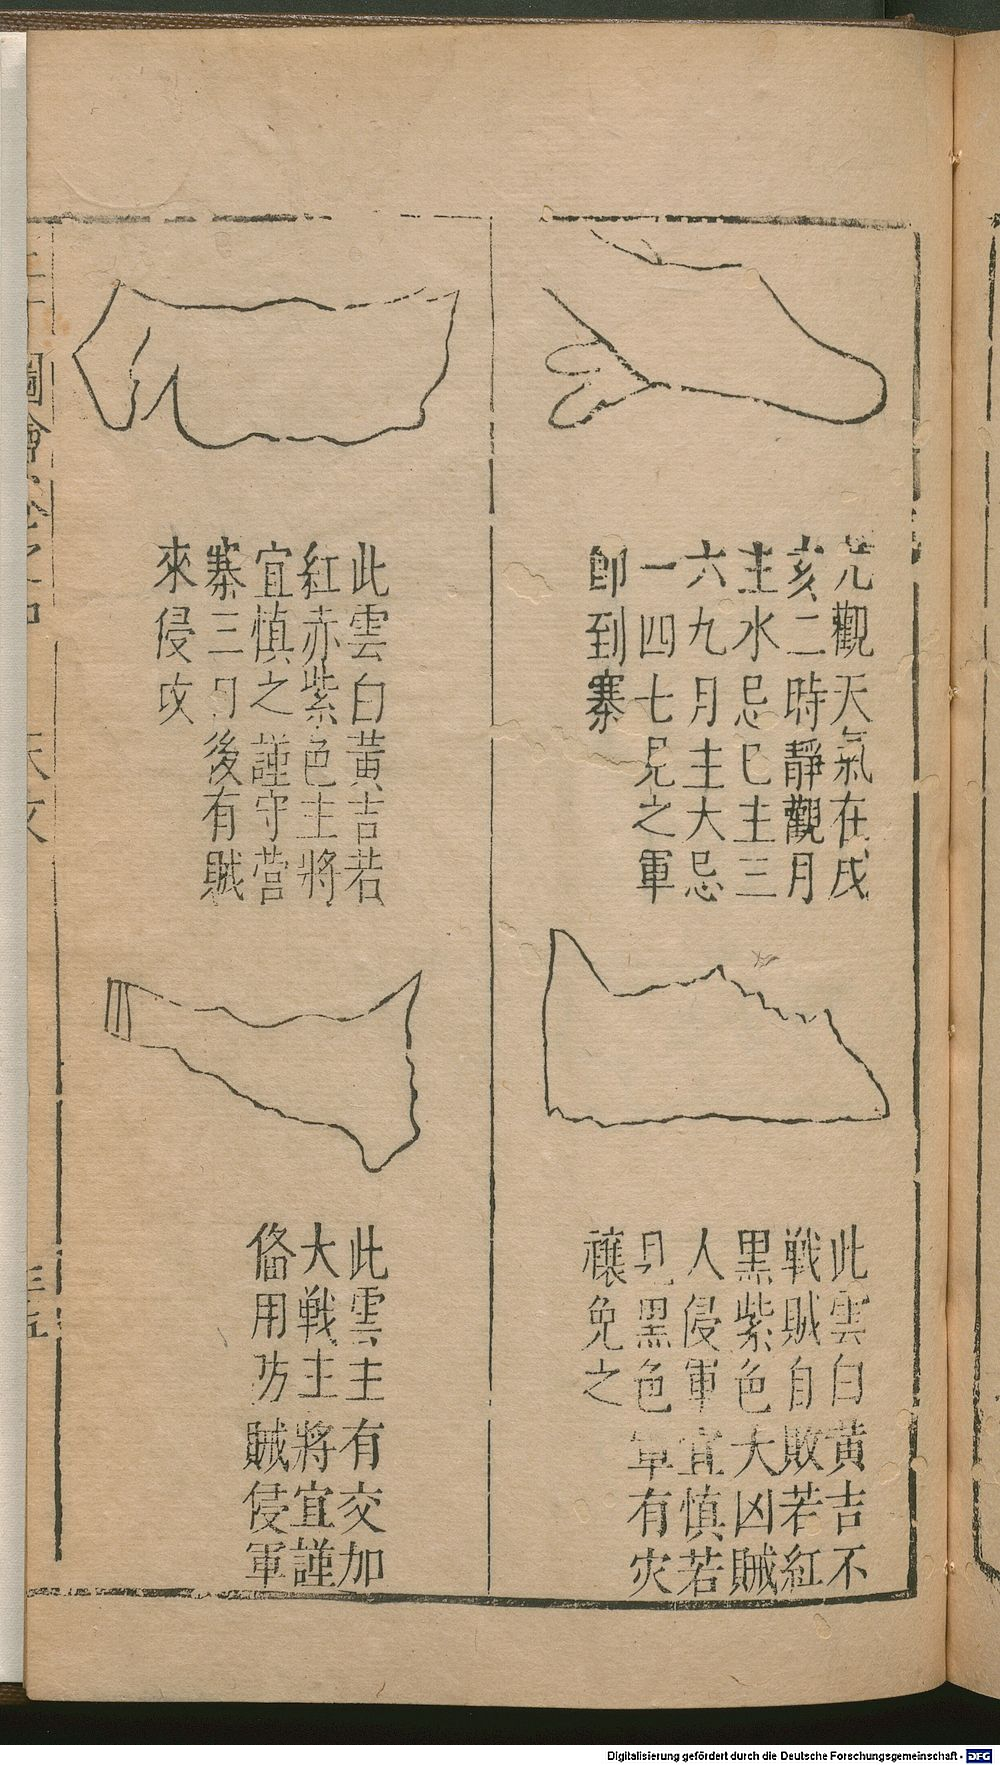 凢觀天氣在戌
亥二時靜觀月
主水忌巳主三
六九月主大忌
一四七見之軍
即到寨
此雲白黃吉不
戦賊自敗若紅
黒紫色大凶賊
人侵軍宜慎若
見黒色軍有灾
禳免之
此雲白黃吉若
紅赤紫色主將
宜慎之謹守营
寨三日後有賊
來侵攻
此雲主有交加
大戦主將宜謹
偹用防賊侵軍
圖會 天文
Digitalisierung gefördert durch die Deutsche Forschungsgemeinschaft - DFG